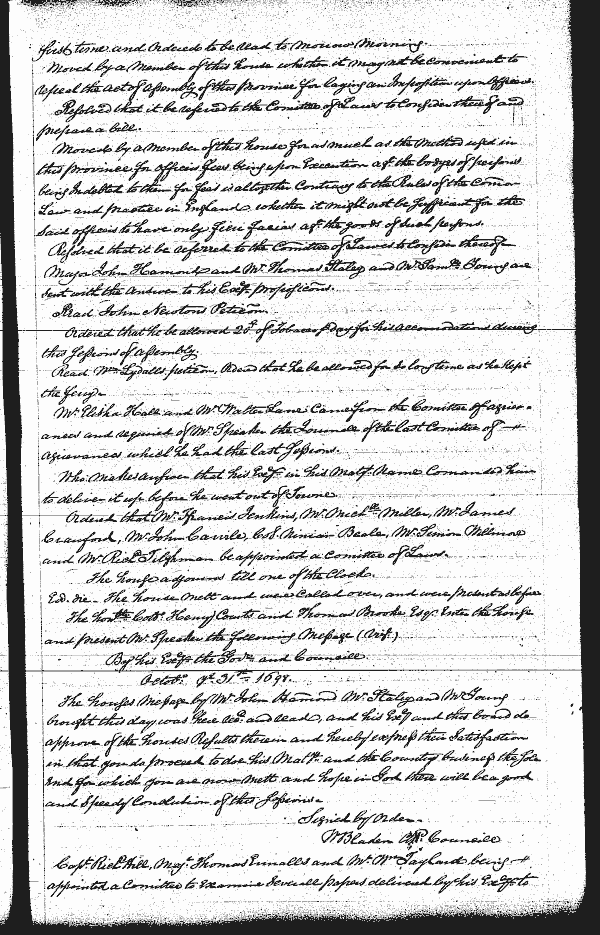 first time and Ordered to be read to morrow Morning.
Moved by a Member of this house whether it may not be convenient to
repeal the Act of Assembly of this Province for laying an Imposition upon
Resolved that it be referred to the Comittee of Laws to Consider thereof and
prepare a bill.
Moved by a Member of this house for as much as the Method used in
this Province for Officers fees being upon Execution agt the bodyes of persons
being Indebted to them for fees is altogether Contrary to the Rules of the Comon
Law and practice in England whether it might not be sufficient for the
said officers to have only fieri facias agt the goods of such persons.
Resolved that it be referred to the Comittee of Lawes to Consider thereof
Major John Hamond and Mr Thomas Staley and Mr Samll Young are
sent with the Answer to his Excys propositions.
Read John Newtons Peticon.
Ordered that he be allowed 20l of Tobacco p day for his accomodations during
this Sessions of Assembly.
Read Wm Lydalls peticon, Ordered that he be allowed for so long time as he kept
the ferry.
Mr Elisha Hall and Mr Walter Lane Came from the Comittee of agriev-
ances and required of Mr Speaker the Journall of the last Comittee of
Agrievances which he had the last Sessions.
Who makes answer that his Excy in his Matys Name Comanded him
to deliver it up before he went out of Towne
Ordered that Mr Francis Jenkins, Mr Michll Miller, Mr James
Crawford, Mr John Carvile, Col. Ninian Beale, Mr Simon Wilmore
and Mr Richd Tilghman be appointed a Comittee of Laws.
The house adjourns till one of the Clock.
Eod. die. The house mett and were Called over, and were present as before
The honble Coll Henry Courts and Thomas Brooke Esqr Enter the house
and present Mr Speaker the following Message (Vizt)
By his Excy the Govr and Councill
Octobr ye 31st 1698.
The houses Message by Mr John Hamond Mr Staley and Mr Young
brought this day was here recd and read, and his Excy and this board do
approve of the houses Results therein and hereby express their Satisfaction
in that you do proceed to doe his Matys and the Country business the sole
End for which you are now mett and hope in God there will be a good
and Speedy Conclusion of this Sessions.
Signed by Order
WBladen Councill
Capt Richd Hill, Majr Thomas Ennalls and Mr Wm Tayland being
appointed a Comittee to Examine severall papers delivered by his Excy to